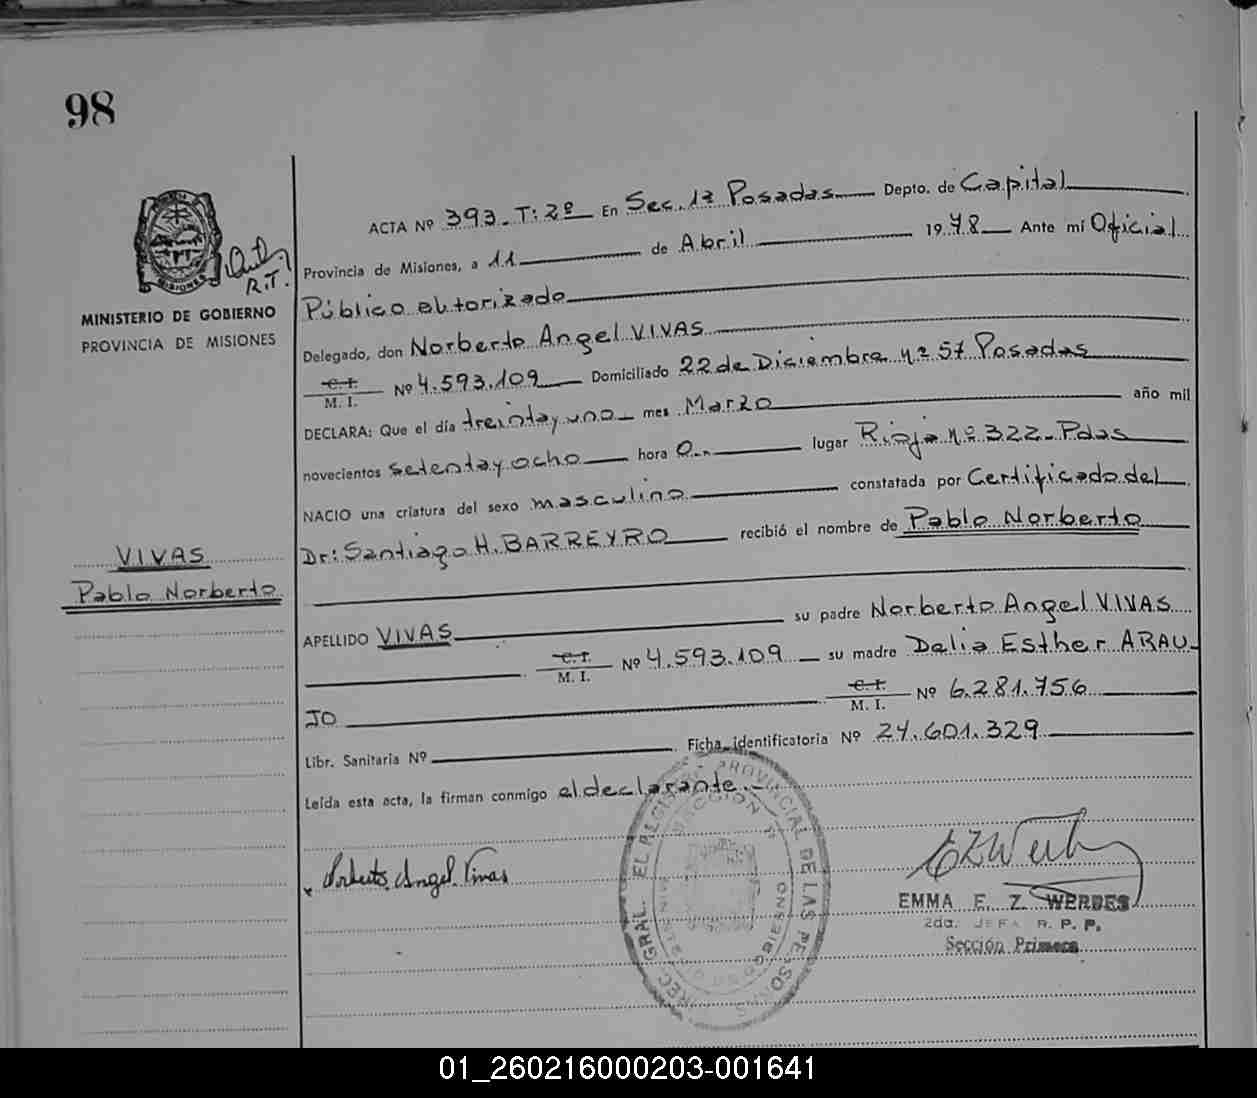 98
ACTA Nº 393. T: 2º En Sec. 1ª Posadas Depto. de Capital
Provincia de Misiones, a 11 de Abril 1978 Ante mí Oficial
R.T.
MINISTERIO DE GOBIERNO
PROVINCIA DE MISIONES
MISIONES
Público autorizado
Delegado, don Norberto Angel VIVAS
C.I. M. I. Nº 4.593.109 Domiciliado 22 de Diciembre nº 57 Posadas
DECLARA: Que el día treinta y uno mes Marzo año mil
novecientos setenta y ocho hora 0.- lugar Rioja nº 322- Pdas
NACIO una criatura del sexo masculino constatada por Certificado del
Dr: Santiago H. BARREYRO recibió el nombre de Pablo Norberto
VIVAS
Pablo Norberto
APELLIDO VIVAS su padre Norberto Angel VIVAS
C.I. M. I. Nº 4.593.109 su madre Delia Esther ARAU-
JO C.I. M. I. Nº 6.281.756
Libr. Sanitaria Nº Ficha identificatoria Nº 24.601.329
Leída esta acta, la firman conmigo el declarante.-
Norberto Angel Vivas
EMMA E. Z. WERDES
2da. JEFA R. P. P.
Sección Primera
REC. GRAL. EL REGISTRO PROVINCIAL DE LAS PERSONAS
01_260216000203-001641